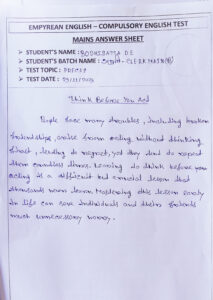 EMPYREAN ENGLISH – COMPULSORY ENGLISH TEST
MAINS ANSWER SHEET
➤ STUDENT'S NAME : BODHISATTA DE
➤ STUDENT'S BATCH NAME : - CLERK MAINS
➤ TEST TOPIC : PRECIS
➤ TEST DATE :
Think Before You Act
People face many troubles, including broken
friendships, arise from acting without thinking
first, leading to regret, yet they tend to repeat
them countless times. Learning to think before you
acting is a difficult but crucial lesson that
students must learn. Mastering this lesson early
in life can save individuals and their friends
much unnecessary worry.